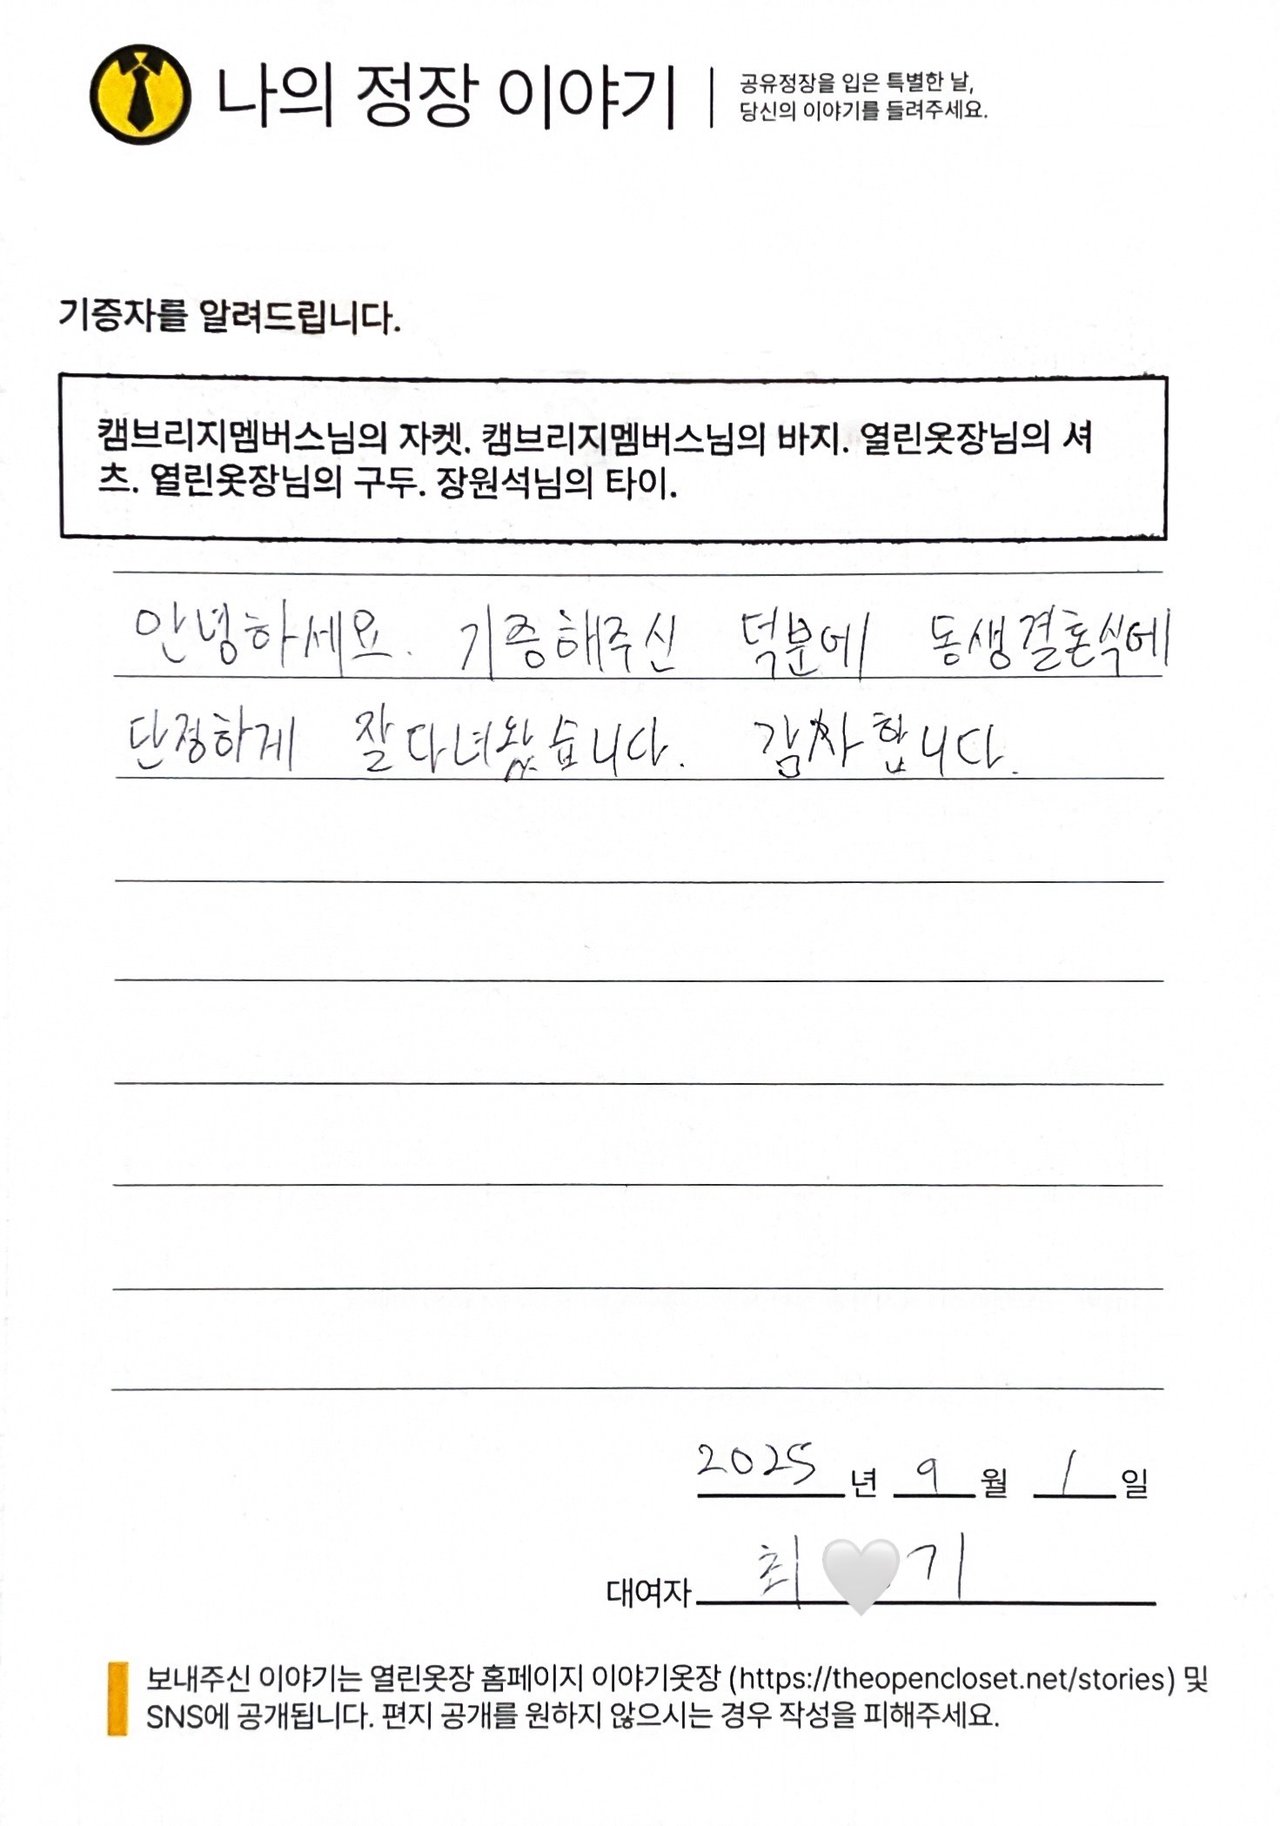 나의 정장 이야기
공유정장을 입은 특별한 날,
당신의 이야기를 들려주세요.
기증자를 알려드립니다.
캠브리지멤버스님의 자켓. 캠브리지멤버스님의 바지. 열린옷장님의 셔
츠. 열린옷장님의 구두. 장원석님의 타이.
안녕하세요. 기증해주신 덕분에 동생결혼식에
단정하게 잘다녀왔습니다. 감사합니다.
2025 년 9 월 1 일
대여자 최 기
보내주신 이야기는 열린옷장 홈페이지 이야기옷장 (https://theopencloset.net/stories) 및
SNS에 공개됩니다. 편지 공개를 원하지 않으시는 경우 작성을 피해주세요.